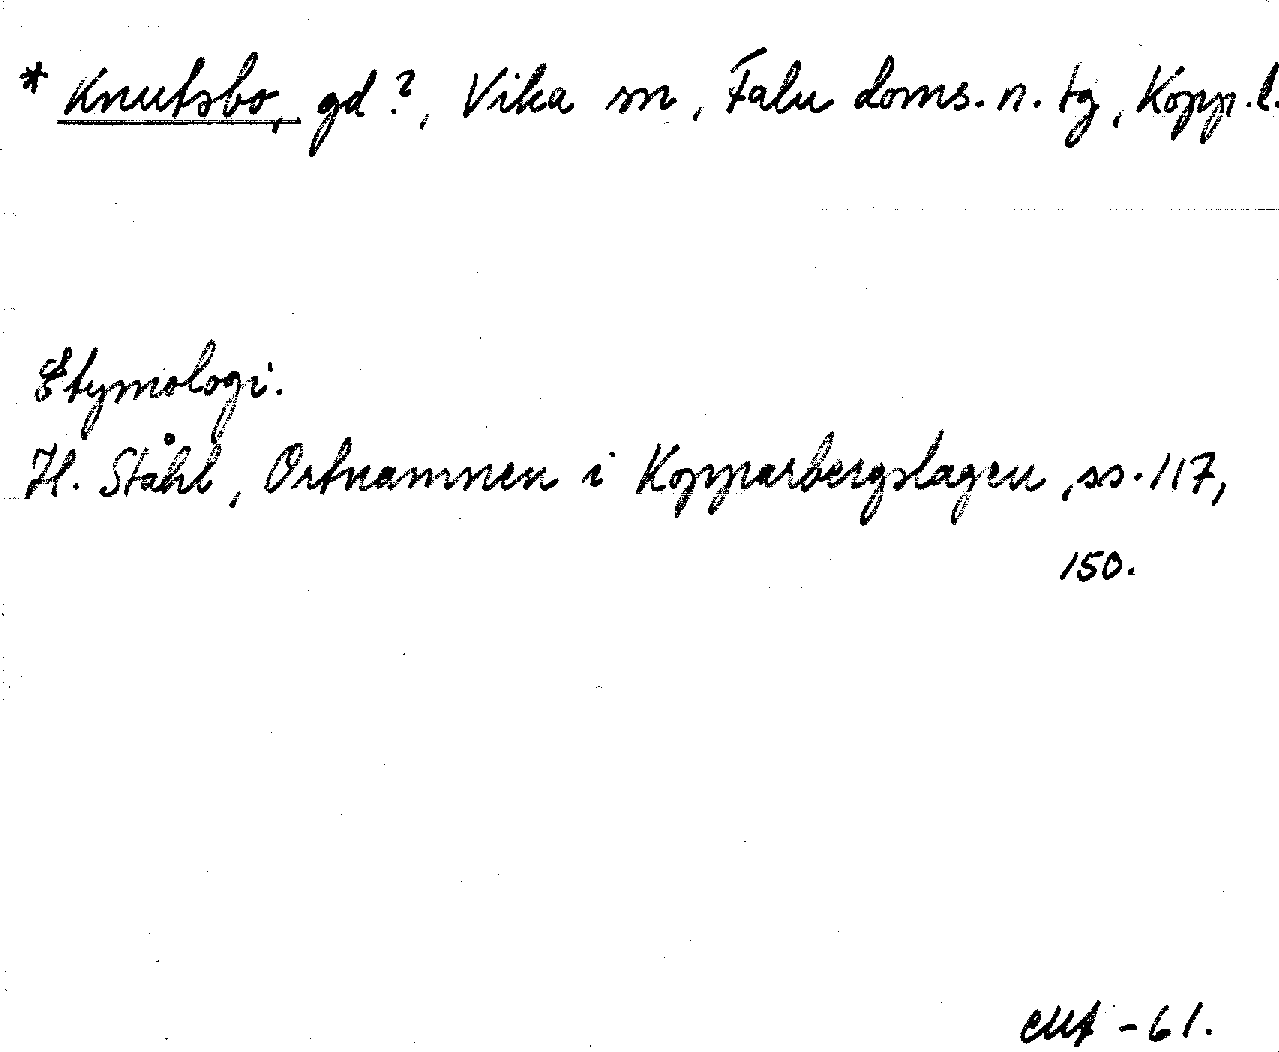 * Knutsbo, gd?, Vika sn, Falu doms. n. tg, Kopp. l.
Etymologi.
H. Ståhl, Ortnamnen i Kopparbergslagen, ss. 117,
150.
-61.